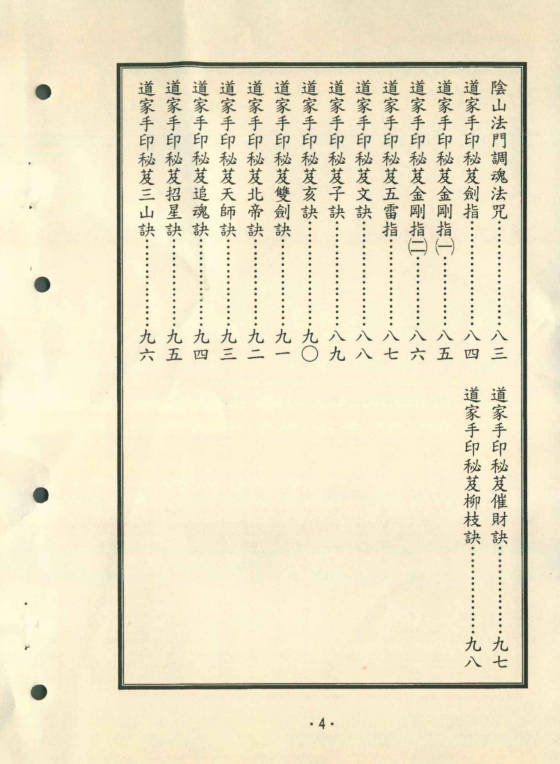 陰山法門調魂法咒………………八三
道家手印秘芨劍指………………八四
道家手印秘芨金剛指㈠…………八五
道家手印秘芨金剛指㈡…………八六
道家手印秘芨五雷指……………八七
道家手印秘芨文訣………………八八
道家手印秘芨子訣………………八九
道家手印秘芨亥訣………………九〇
道家手印秘芨雙劍訣……………九一
道家手印秘芨北帝訣……………九二
道家手印秘芨天師訣……………九三
道家手印秘芨追魂訣……………九四
道家手印秘芨招星訣……………九五
道家手印秘芨三山訣……………九六
道家手印秘芨催財訣……………九七
道家手印秘芨柳枝訣……………九八
·4·